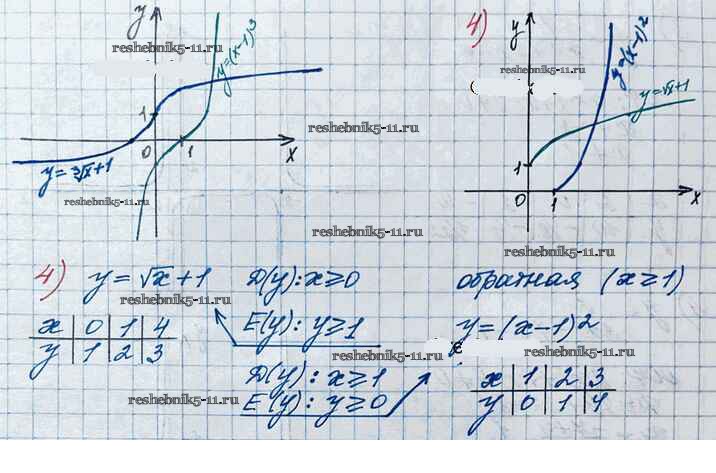 y
reshebnik5-11.ru
y=(x-1)³
1
0
1
x
y=∛x+1
reshebnik5-11.ru
reshebnik5-11.ru
reshebnik5-11.ru
4)
y
reshebnik5-11.ru
y=(x-1)²
y=√x+1
1
0
1
x
reshebnik5-11.ru
reshebnik5-11.ru
4) y=√x+1 D(y): x≥0 обратная (x≥1)
reshebnik5-11.ru
reshebnik5-11.ru
x 0 1 4 E(y): y≥1 y=(x-1)²
y 1 2 3
reshebnik5-11.ru
reshebnik5-11.ru
D(y): x≥1 x 1 2 3
E(y): y≥0 y 0 1 4
reshebnik5-11.ru
reshebnik5-11.ru